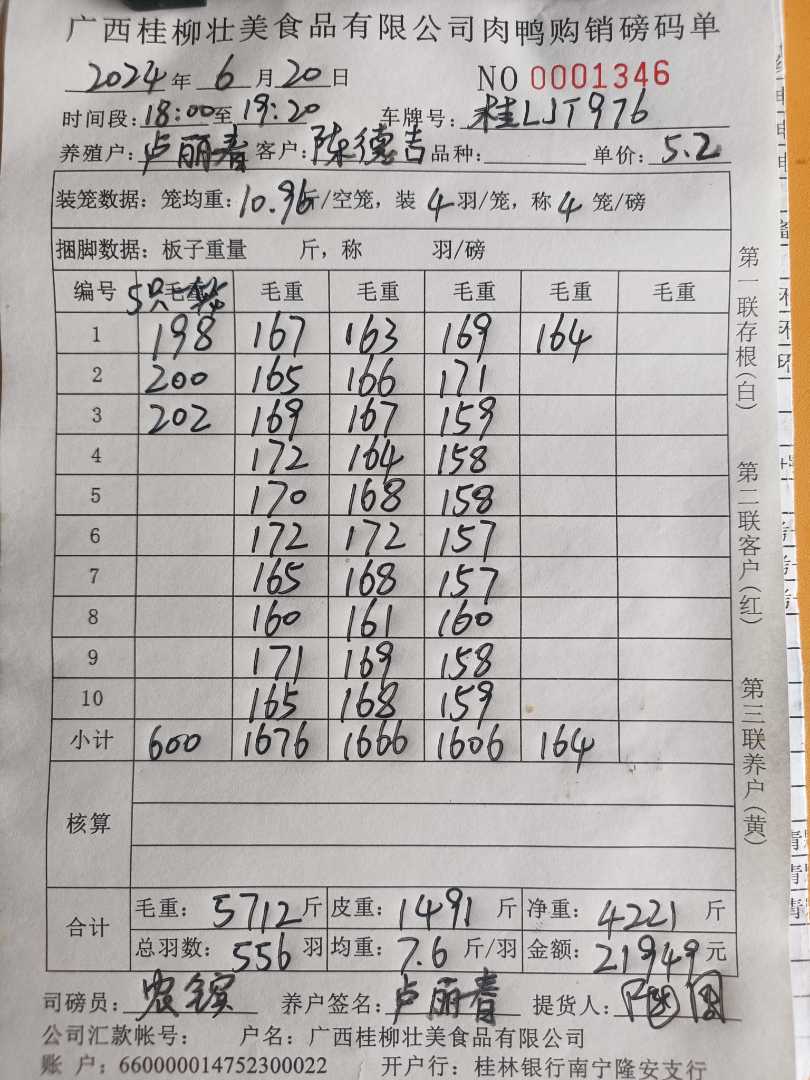 广西桂柳壮美食品有限公司肉鸭购销磅码单
2024年 6月20日 NO 0001346
时间段:18:00至19:20 车牌号:桂LJT976
养殖户:卢丽春 客户:陈德吉 品种: 单价:5.2
装笼数据:笼均重:10.96斤/空笼,装4羽/笼,称4笼/磅
捆脚数据:板子重量 斤,称 羽/磅
编号 5只一 毛重 毛重 毛重 毛重 毛重 毛重
1 198 167 163 169 164
2 200 165 166 171
3 202 169 167 159
4 172 164 158
5 170 168 158
6 172 172 157
7 165 168 157
8 160 161 160
9 171 169 158
10 165 168 159
小计 600 1676 1666 1606 164
核算
合计 毛重:5712斤 皮重:1491斤 净重:4221斤
总羽数:556羽 均重:7.6斤/羽 金额:21949元
司磅员:农镔 养户签名:卢丽春 提货人:
公司汇款帐号: 户名:广西桂柳壮美食品有限公司
账 户:660000014752300022 开户行:桂林银行南宁隆安支行
第一联存根(白)
第二联客户(红)
第三联养户(黄)